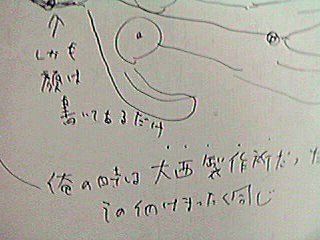 しかも
顔は
書いてあるだけ
俺の時は大西製作所だった
その他はまったく同じ